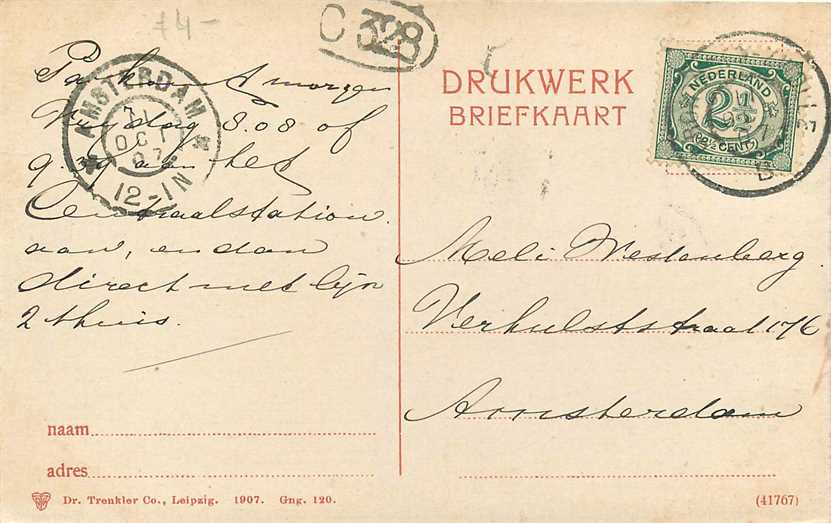 74-
C 328
AMSTERDAM
7
OCT
07
12-1N
morgen
8.08 of
9.39 aan het
Centraalstation
aan, en dan
direct met lijn
2 thuis.
DRUKWERK
BRIEFKAART
NEDERLAND
2½
(2½ CENT)
Meli Westenberg
Verhulststraat 176
Amsterdam
naam
adres
Dr. Trenkler Co., Leipzig. 1907. Gng. 120.
(41767)